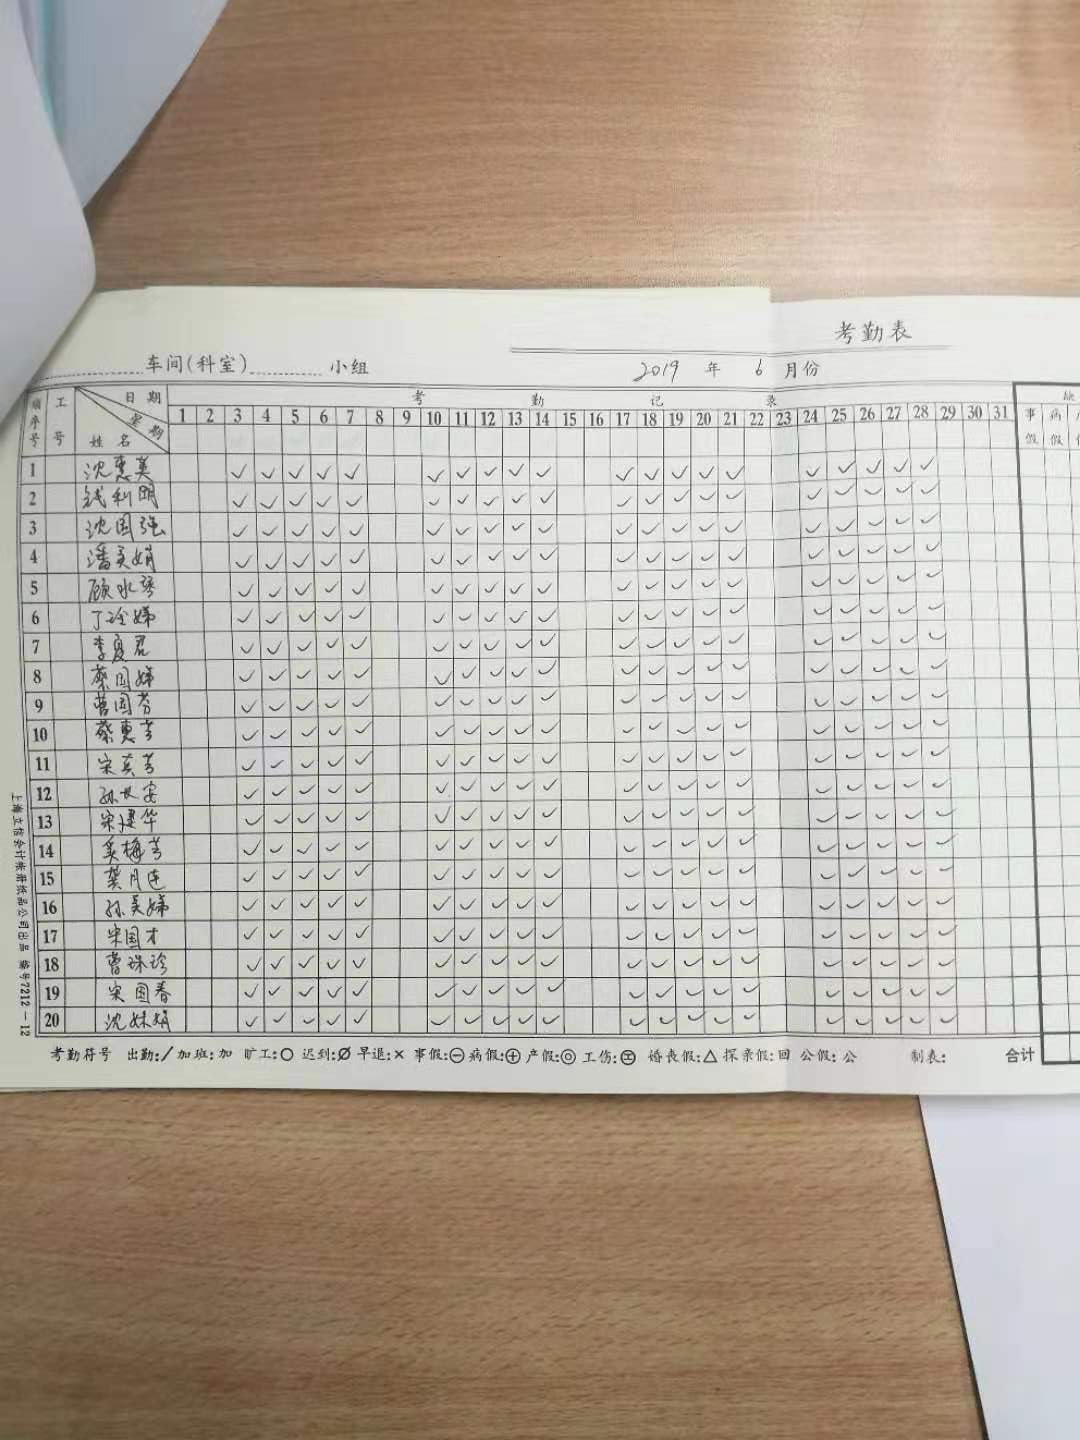 考勤表
车间(科室) 小组 2019 年 6 月份
顺序号 工号 日期 星期 姓名 考勤记录 缺
1 2 3 4 5 6 7 8 9 10 11 12 13 14 15 16 17 18 19 20 21 22 23 24 25 26 27 28 29 30 31 事假 病假
1 沈惠英 ✓ ✓ ✓ ✓ ✓ ✓ ✓ ✓ ✓ ✓ ✓ ✓ ✓ ✓ ✓ ✓ ✓ ✓ ✓ ✓
2 钱利明 ✓ ✓ ✓ ✓ ✓ ✓ ✓ ✓ ✓ ✓ ✓ ✓ ✓ ✓ ✓ ✓ ✓ ✓ ✓ ✓
3 沈国强 ✓ ✓ ✓ ✓ ✓ ✓ ✓ ✓ ✓ ✓ ✓ ✓ ✓ ✓ ✓ ✓ ✓ ✓ ✓ ✓
4 潘美娟 ✓ ✓ ✓ ✓ ✓ ✓ ✓ ✓ ✓ ✓ ✓ ✓ ✓ ✓ ✓ ✓ ✓ ✓ ✓ ✓
5 顾水琴 ✓ ✓ ✓ ✓ ✓ ✓ ✓ ✓ ✓ ✓ ✓ ✓ ✓ ✓ ✓ ✓ ✓ ✓ ✓ ✓
6 ✓ ✓ ✓ ✓ ✓ ✓ ✓ ✓ ✓ ✓ ✓ ✓ ✓ ✓ ✓ ✓ ✓ ✓ ✓ ✓
7 李夏君 ✓ ✓ ✓ ✓ ✓ ✓ ✓ ✓ ✓ ✓ ✓ ✓ ✓ ✓ ✓ ✓ ✓ ✓ ✓ ✓
8 蔡国娣 ✓ ✓ ✓ ✓ ✓ ✓ ✓ ✓ ✓ ✓ ✓ ✓ ✓ ✓ ✓ ✓ ✓ ✓ ✓ ✓
9 曹国芬 ✓ ✓ ✓ ✓ ✓ ✓ ✓ ✓ ✓ ✓ ✓ ✓ ✓ ✓ ✓ ✓ ✓ ✓ ✓ ✓
10 蔡惠芳 ✓ ✓ ✓ ✓ ✓ ✓ ✓ ✓ ✓ ✓ ✓ ✓ ✓ ✓ ✓ ✓ ✓ ✓ ✓ ✓
11 宋英芳 ✓ ✓ ✓ ✓ ✓ ✓ ✓ ✓ ✓ ✓ ✓ ✓ ✓ ✓ ✓ ✓ ✓ ✓ ✓ ✓
12 孙世安 ✓ ✓ ✓ ✓ ✓ ✓ ✓ ✓ ✓ ✓ ✓ ✓ ✓ ✓ ✓ ✓ ✓ ✓ ✓ ✓
13 宋建华 ✓ ✓ ✓ ✓ ✓ ✓ ✓ ✓ ✓ ✓ ✓ ✓ ✓ ✓ ✓ ✓ ✓ ✓ ✓ ✓
14 吴梅芳 ✓ ✓ ✓ ✓ ✓ ✓ ✓ ✓ ✓ ✓ ✓ ✓ ✓ ✓ ✓ ✓ ✓ ✓ ✓ ✓
15 龚月连 ✓ ✓ ✓ ✓ ✓ ✓ ✓ ✓ ✓ ✓ ✓ ✓ ✓ ✓ ✓ ✓ ✓ ✓ ✓ ✓
16 孙美娣 ✓ ✓ ✓ ✓ ✓ ✓ ✓ ✓ ✓ ✓ ✓ ✓ ✓ ✓ ✓ ✓ ✓ ✓ ✓ ✓
17 宋国才 ✓ ✓ ✓ ✓ ✓ ✓ ✓ ✓ ✓ ✓ ✓ ✓ ✓ ✓ ✓ ✓ ✓ ✓ ✓ ✓
18 曹珠珍 ✓ ✓ ✓ ✓ ✓ ✓ ✓ ✓ ✓ ✓ ✓ ✓ ✓ ✓ ✓ ✓ ✓ ✓ ✓ ✓
19 宋国春 ✓ ✓ ✓ ✓ ✓ ✓ ✓ ✓ ✓ ✓ ✓ ✓ ✓ ✓ ✓ ✓ ✓ ✓ ✓ ✓
20 沈妹娟 ✓ ✓ ✓ ✓ ✓ ✓ ✓ ✓ ✓ ✓ ✓ ✓ ✓ ✓ ✓ ✓ ✓ ✓ ✓ ✓
考勤符号 出勤:/ 加班:加 旷工:○ 迟到:Ø 早退:× 事假:⊖ 病假:⊕ 产假:◎ 工伤:㊣ 婚丧假:△ 探亲假:回 公假:公 制表: 合计
上海立信会计帐册纸品公司出品 编号7212-12